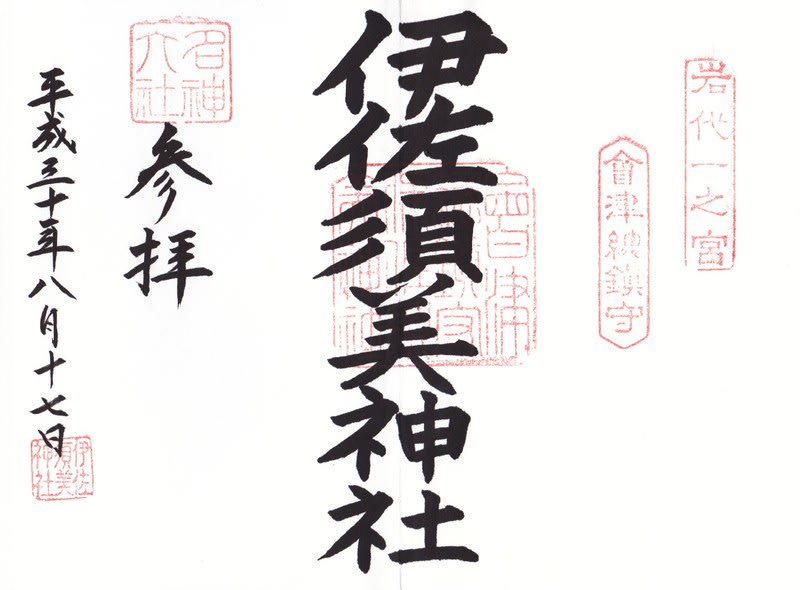 岩代一之宮
會津總鎮守
伊佐須美神社
名神大社
参拝
平成三十年八月十七日
伊佐須美神社